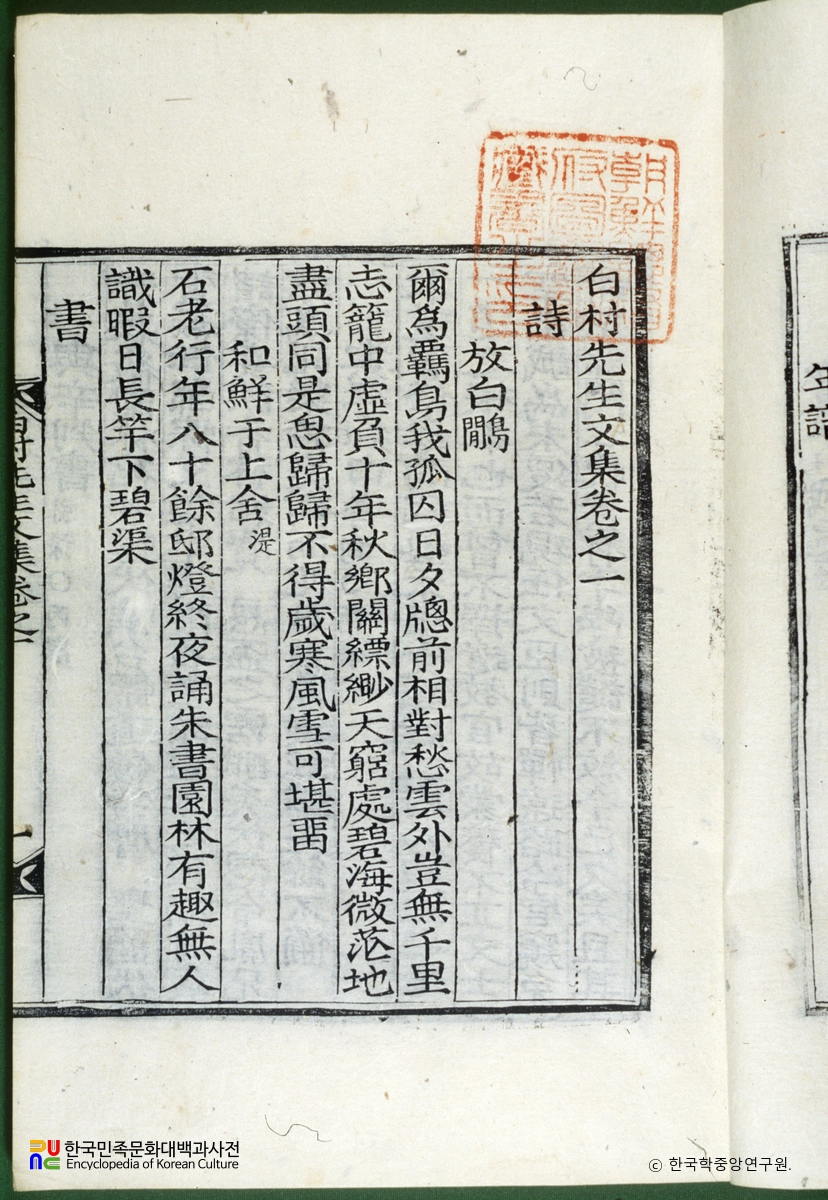 白村先生文集卷之一
詩
放白鷴
爾爲羈鳥我孤囚日夕牕前相對愁雲外豈無千里
志籠中虛負十年秋鄕關縹緲天窮處碧海微茫地
盡頭同是思歸歸不得歲寒風雪可堪畱
和鮮于上舍湜
石老行年八十餘邸燈終夜誦朱書園林有趣無人
識暇日長竿下碧渠
書
白村先生文集卷之一
年譜
한국민족문화대백과사전
Encyclopedia of Korean Culture
© 한국학중앙연구원.